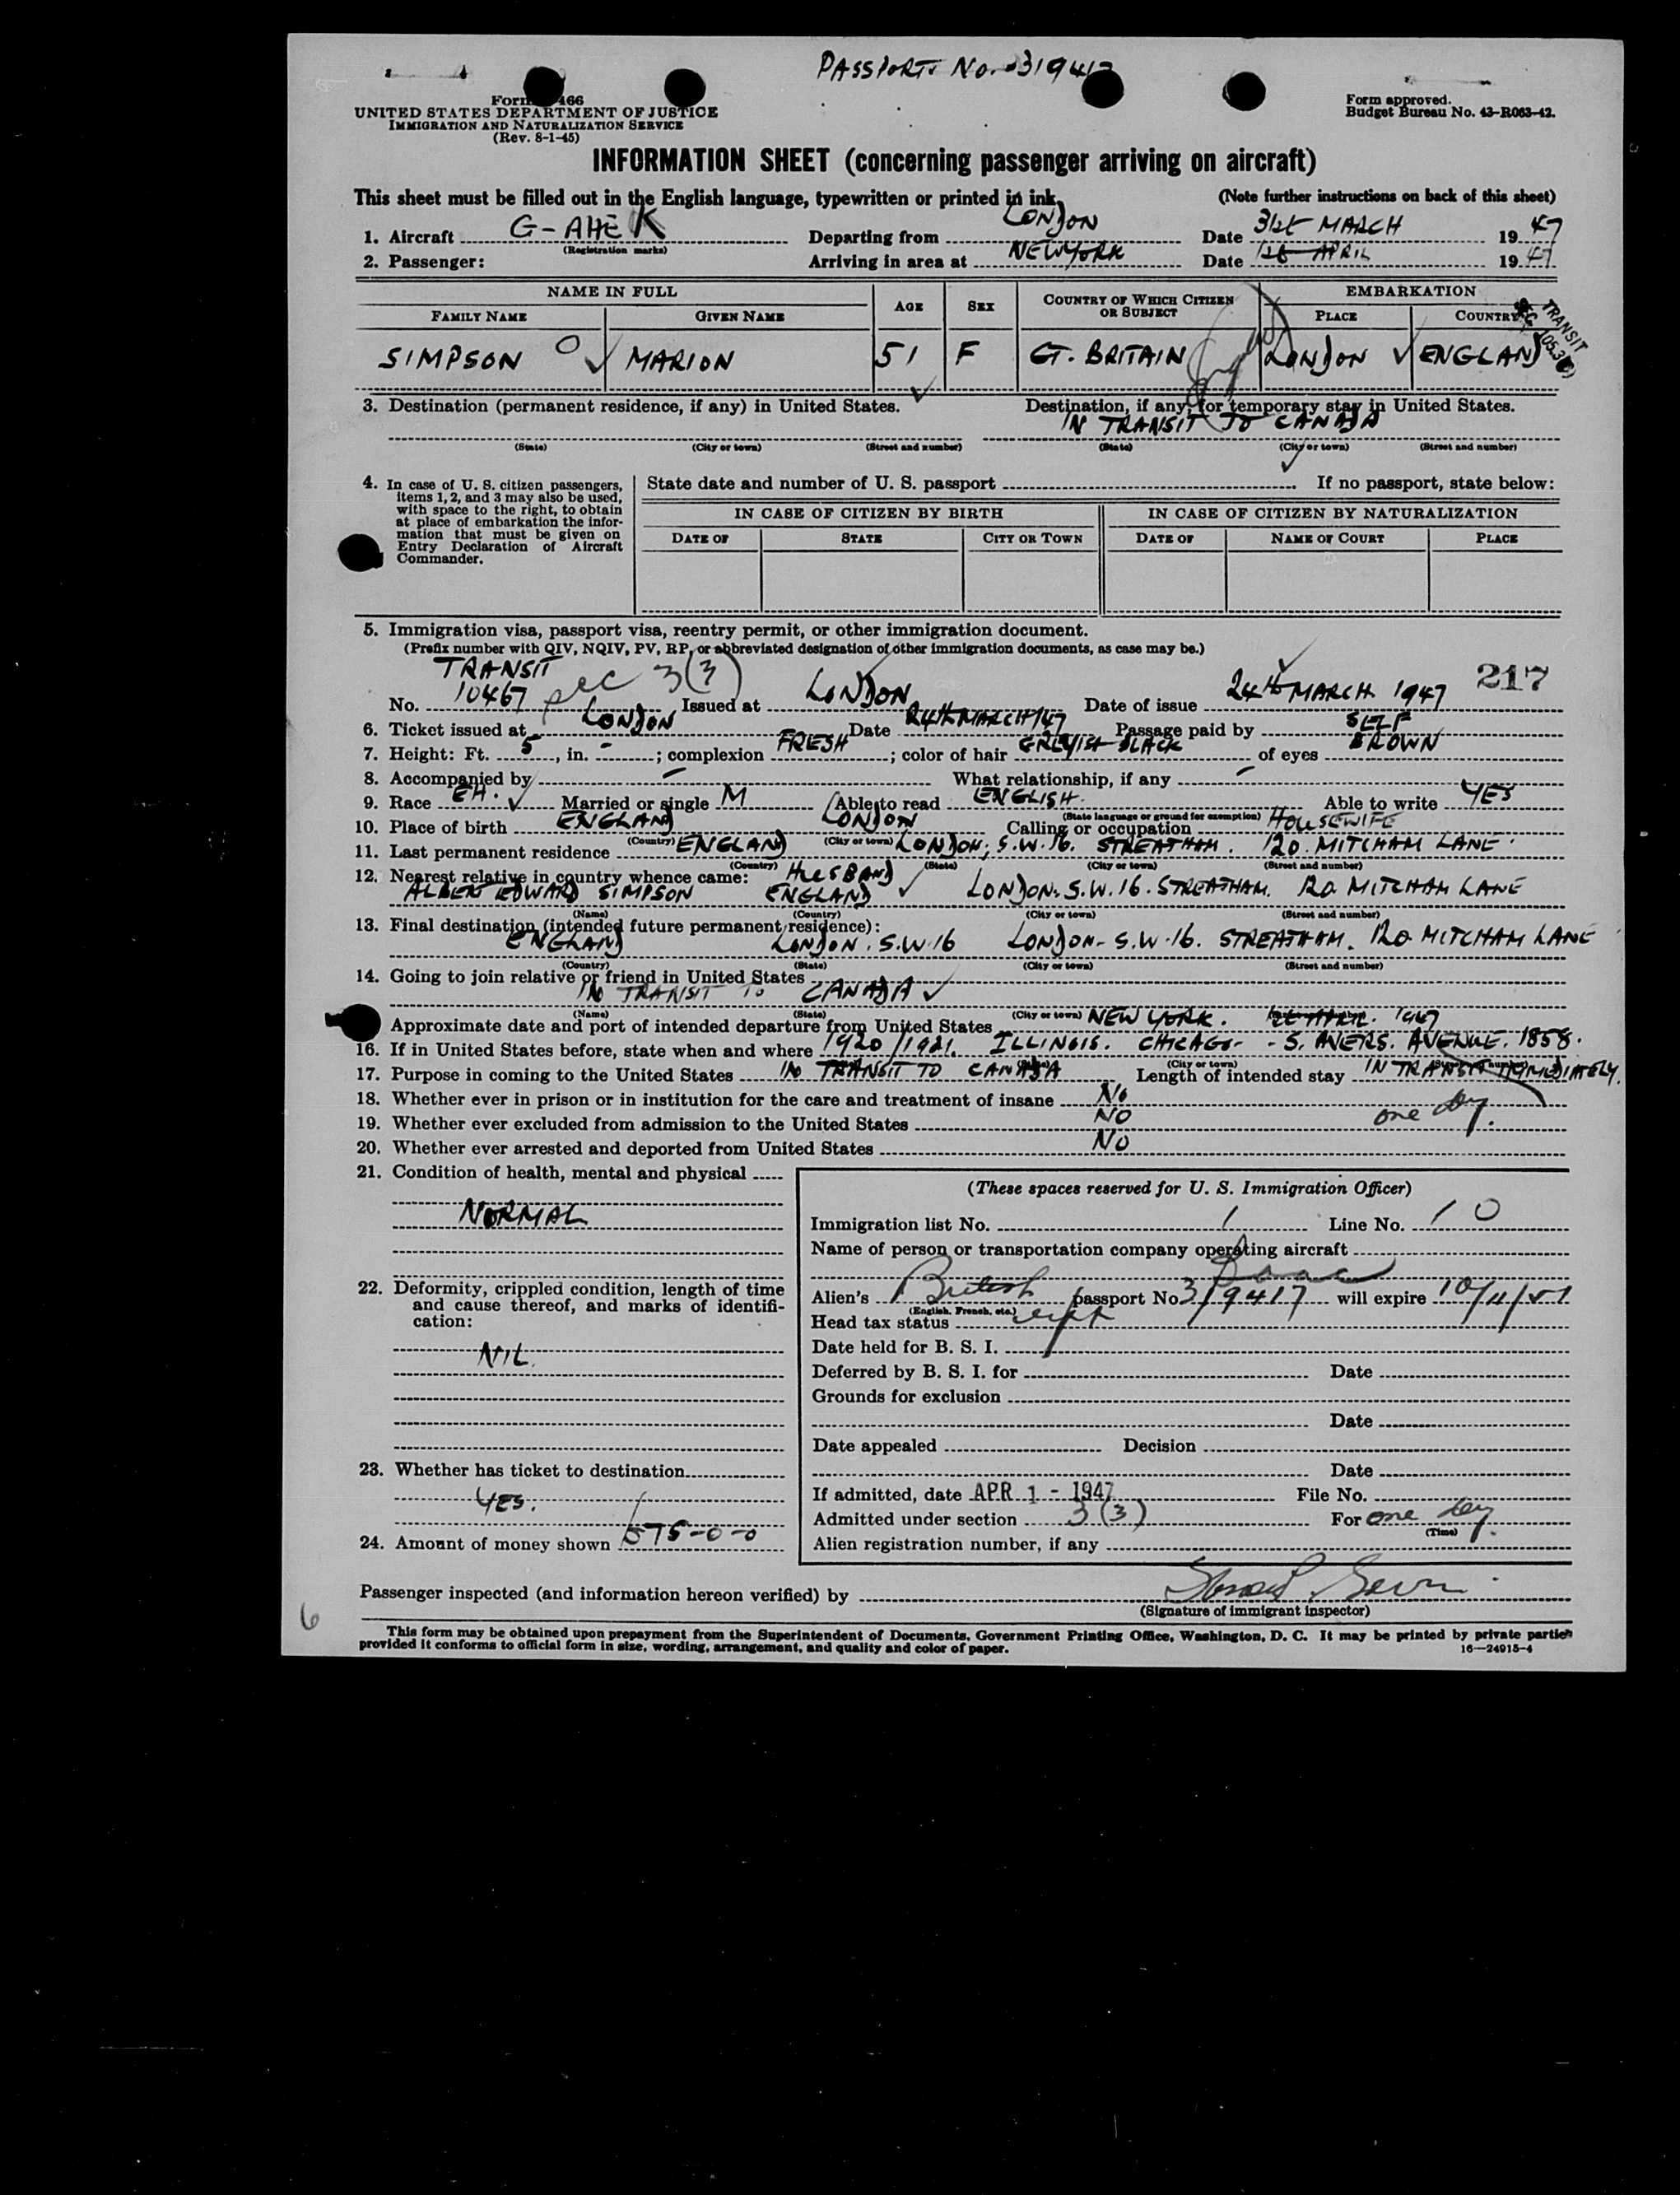 PASSPORT No. 319417
Form 466
UNITED STATES DEPARTMENT OF JUSTICE
IMMIGRATION AND NATURALIZATION SERVICE
(Rev. 8-1-45)
Form approved.
Budget Bureau No. 43-R063-42.
INFORMATION SHEET (concerning passenger arriving on aircraft)
This sheet must be filled out in the English language, typewritten or printed in ink. (Note further instructions on back of this sheet)
1. Aircraft G-AHEK Departing from LONDON Date 31st MARCH 1947
(Registration marks)
2. Passenger: Arriving in area at NEW YORK Date 1st APRIL 1947
NAME IN FULL AGE SEX COUNTRY OF WHICH CITIZEN OR SUBJECT EMBARKATION
FAMILY NAME GIVEN NAME PLACE COUNTRY
TRANSIT
SIMPSON MARION 51 F GT. BRITAIN LONDON ENGLAND
3. Destination (permanent residence, if any) in United States. Destination, if any, for temporary stay in United States.
IN TRANSIT TO CANADA
(State) (City or town) (Street and number) (State) (City or town) (Street and number)
4. In case of U. S. citizen passengers, items 1, 2, and 3 may also be used, with space to the right, to obtain at place of embarkation the information that must be given on Entry Declaration of Aircraft Commander.
State date and number of U. S. passport If no passport, state below:
IN CASE OF CITIZEN BY BIRTH IN CASE OF CITIZEN BY NATURALIZATION
DATE OF STATE CITY OR TOWN DATE OF NAME OF COURT PLACE
5. Immigration visa, passport visa, reentry permit, or other immigration document.
(Prefix number with QIV, NQIV, PV, RP, or abbreviated designation of other immigration documents, as case may be.)
TRANSIT
217
No. 10467 sec 3(3) Issued at LONDON Date of issue 24th MARCH 1947
6. Ticket issued at LONDON Date 24th MARCH/47 Passage paid by SELF
7. Height: Ft. 5, in. -; complexion FRESH; color of hair GREYISH BLACK of eyes BROWN
8. Accompanied by - What relationship, if any -
9. Race EH. Married or single M Able to read ENGLISH. Able to write YES
(State language or ground for exemption)
10. Place of birth ENGLAND LONDON Calling or occupation HOUSEWIFE
(Country) (City or town)
11. Last permanent residence ENGLAND LONDON, S.W.16. STREATHAM. 120 MITCHAM LANE
(Country) (State) (City or town) (Street and number)
12. Nearest relative in country whence came: HUSBAND
ALBERT EDWARD SIMPSON ENGLAND LONDON. S.W.16. STREATHAM. 120 MITCHAM LANE
(Name) (Country) (City or town) (Street and number)
13. Final destination (intended future permanent residence):
ENGLAND LONDON. S.W.16 LONDON-S.W.16. STREATHAM. 120 MITCHAM LANE
(Country) (State) (City or town) (Street and number)
14. Going to join relative or friend in United States
IN TRANSIT TO CANADA
(Name) (State) (City or town)
Approximate date and port of intended departure from United States NEW YORK. APRIL. 1947
16. If in United States before, state when and where 1920/1921. ILLINOIS. CHICAGO- - S. AVERS. AVENUE. 1858.
(City or town)
17. Purpose in coming to the United States IN TRANSIT TO CANADA Length of intended stay IN TRANSIT IMMEDIATELY.
one day.
18. Whether ever in prison or in institution for the care and treatment of insane No
19. Whether ever excluded from admission to the United States NO
20. Whether ever arrested and deported from United States No
21. Condition of health, mental and physical
NORMAL
22. Deformity, crippled condition, length of time and cause thereof, and marks of identification:
NIL.
23. Whether has ticket to destination
YES.
24. Amount of money shown £75-0-0
(These spaces reserved for U. S. Immigration Officer)
Immigration list No. 1 Line No. 10
Name of person or transportation company operating aircraft
Boac
Alien's British passport No 319417 will expire 10/11/51
(English, French, etc.)
Head tax status
Date held for B. S. I.
Deferred by B. S. I. for Date
Grounds for exclusion
Date
Date appealed Decision
Date
If admitted, date APR 1 - 1947 File No.
Admitted under section 3(3) For one day.
(Time)
Alien registration number, if any
Passenger inspected (and information hereon verified) by
(Signature of immigrant inspector)
6
This form may be obtained upon prepayment from the Superintendent of Documents, Government Printing Office, Washington, D. C. It may be printed by private parties
provided it conforms to official form in size, wording, arrangement, and quality and color of paper. 16—24915-4